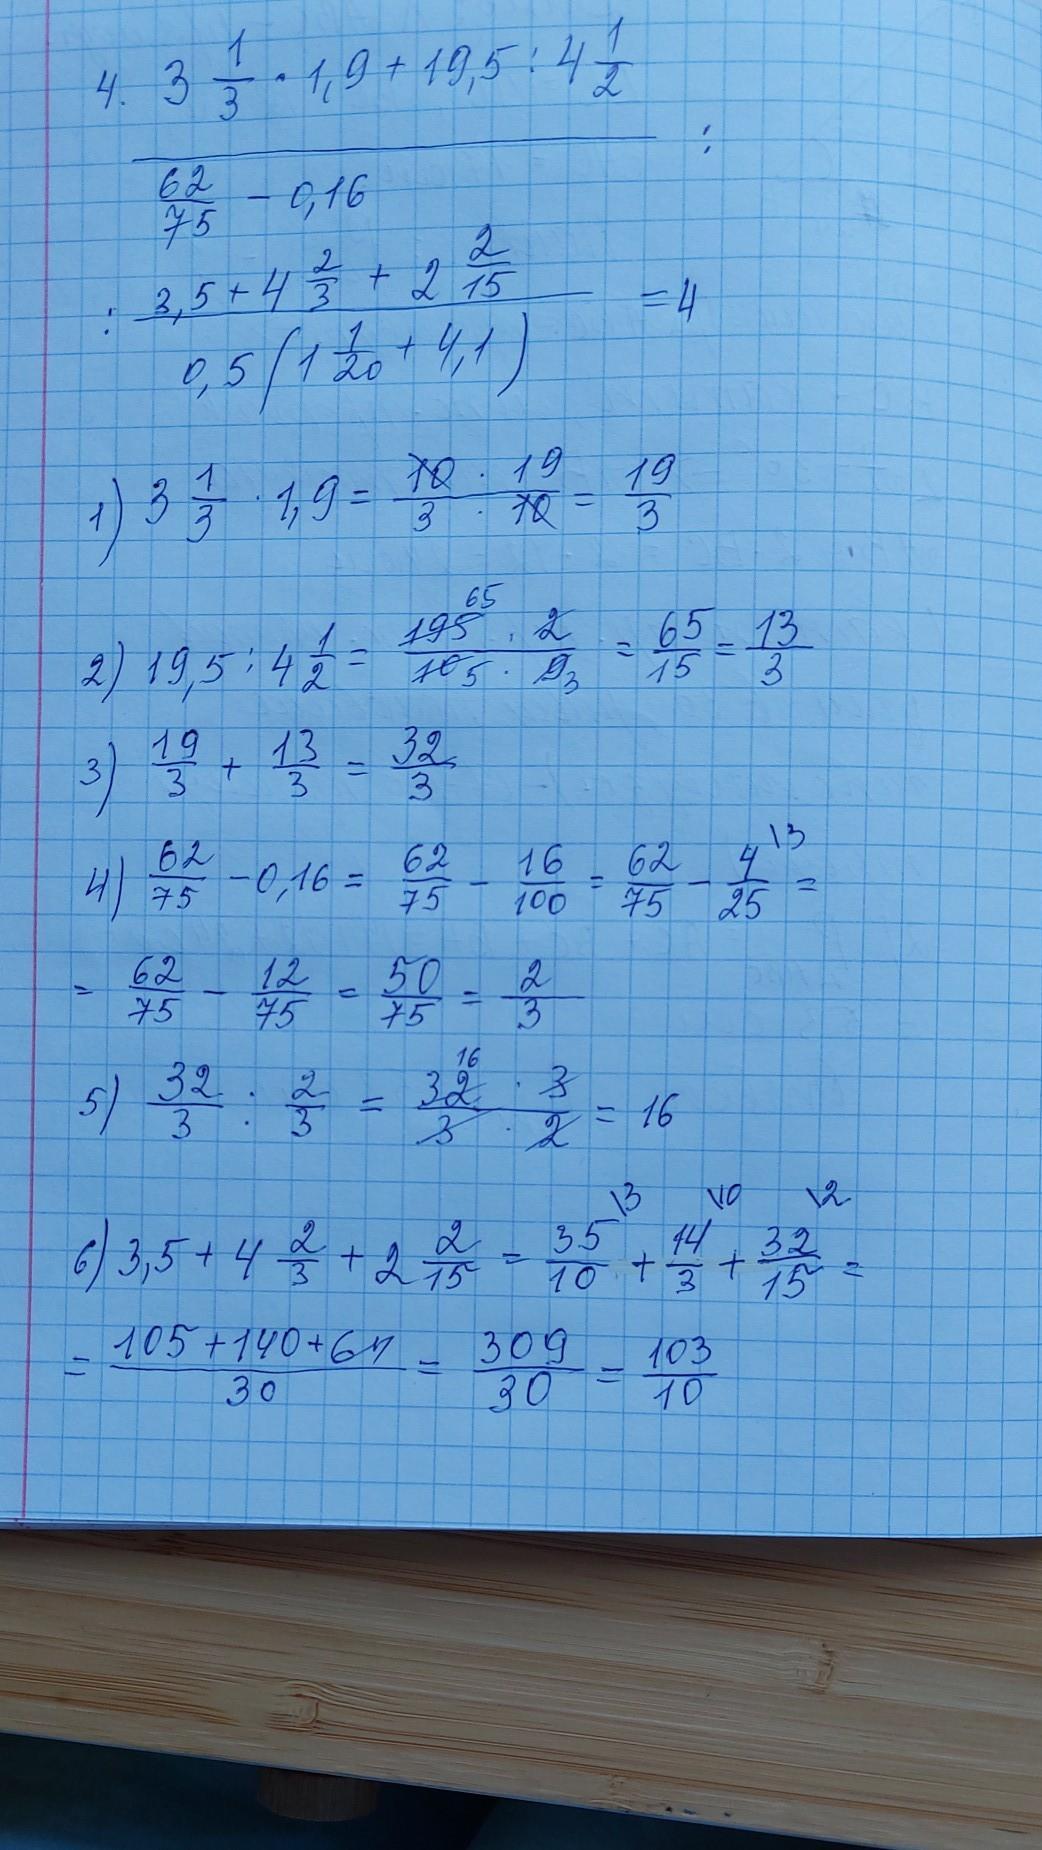 4. 3 1/3 · 1,9 + 19,5 : 4 1/2
:
62/75 - 0,16
: 3,5 + 4 2/3 + 2 2/15 = 4
0,5 (1 1/20 + 4,1)
1) 3 1/3 · 1,9 = 10 · 19 / 3 · 10 = 19/3
2) 19,5 : 4 1/2 = 195 65 · 2 / 10 5 · 9 3 = 65/15 = 13/3
3) 19/3 + 13/3 = 32/3
4) 62/75 - 0,16 = 62/75 - 16/100 = 62/75 - 4/25 \3 =
= 62/75 - 12/75 = 50/75 = 2/3
5) 32/3 : 2/3 = 32 16 · 3 / 3 · 2 = 16
6) 3,5 + 4 2/3 + 2 2/15 = 35/10 \3 + 14/3 \10 + 32/15 \2 =
= 105 + 140 + 64 / 30 = 309/30 = 103/10